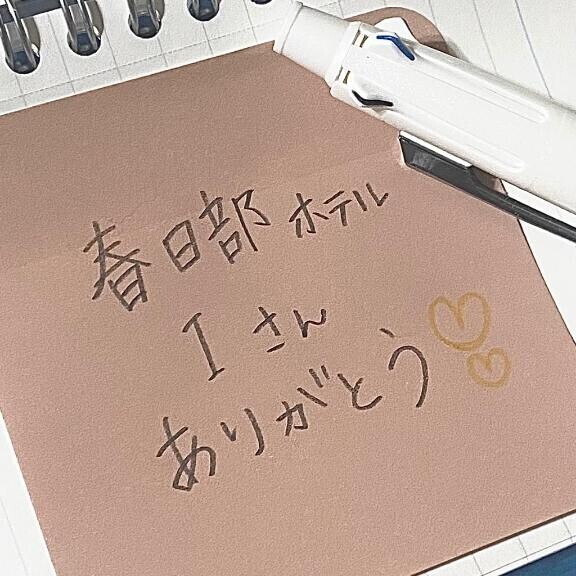 春日部 ホテル
I さん
ありがとう♡♡